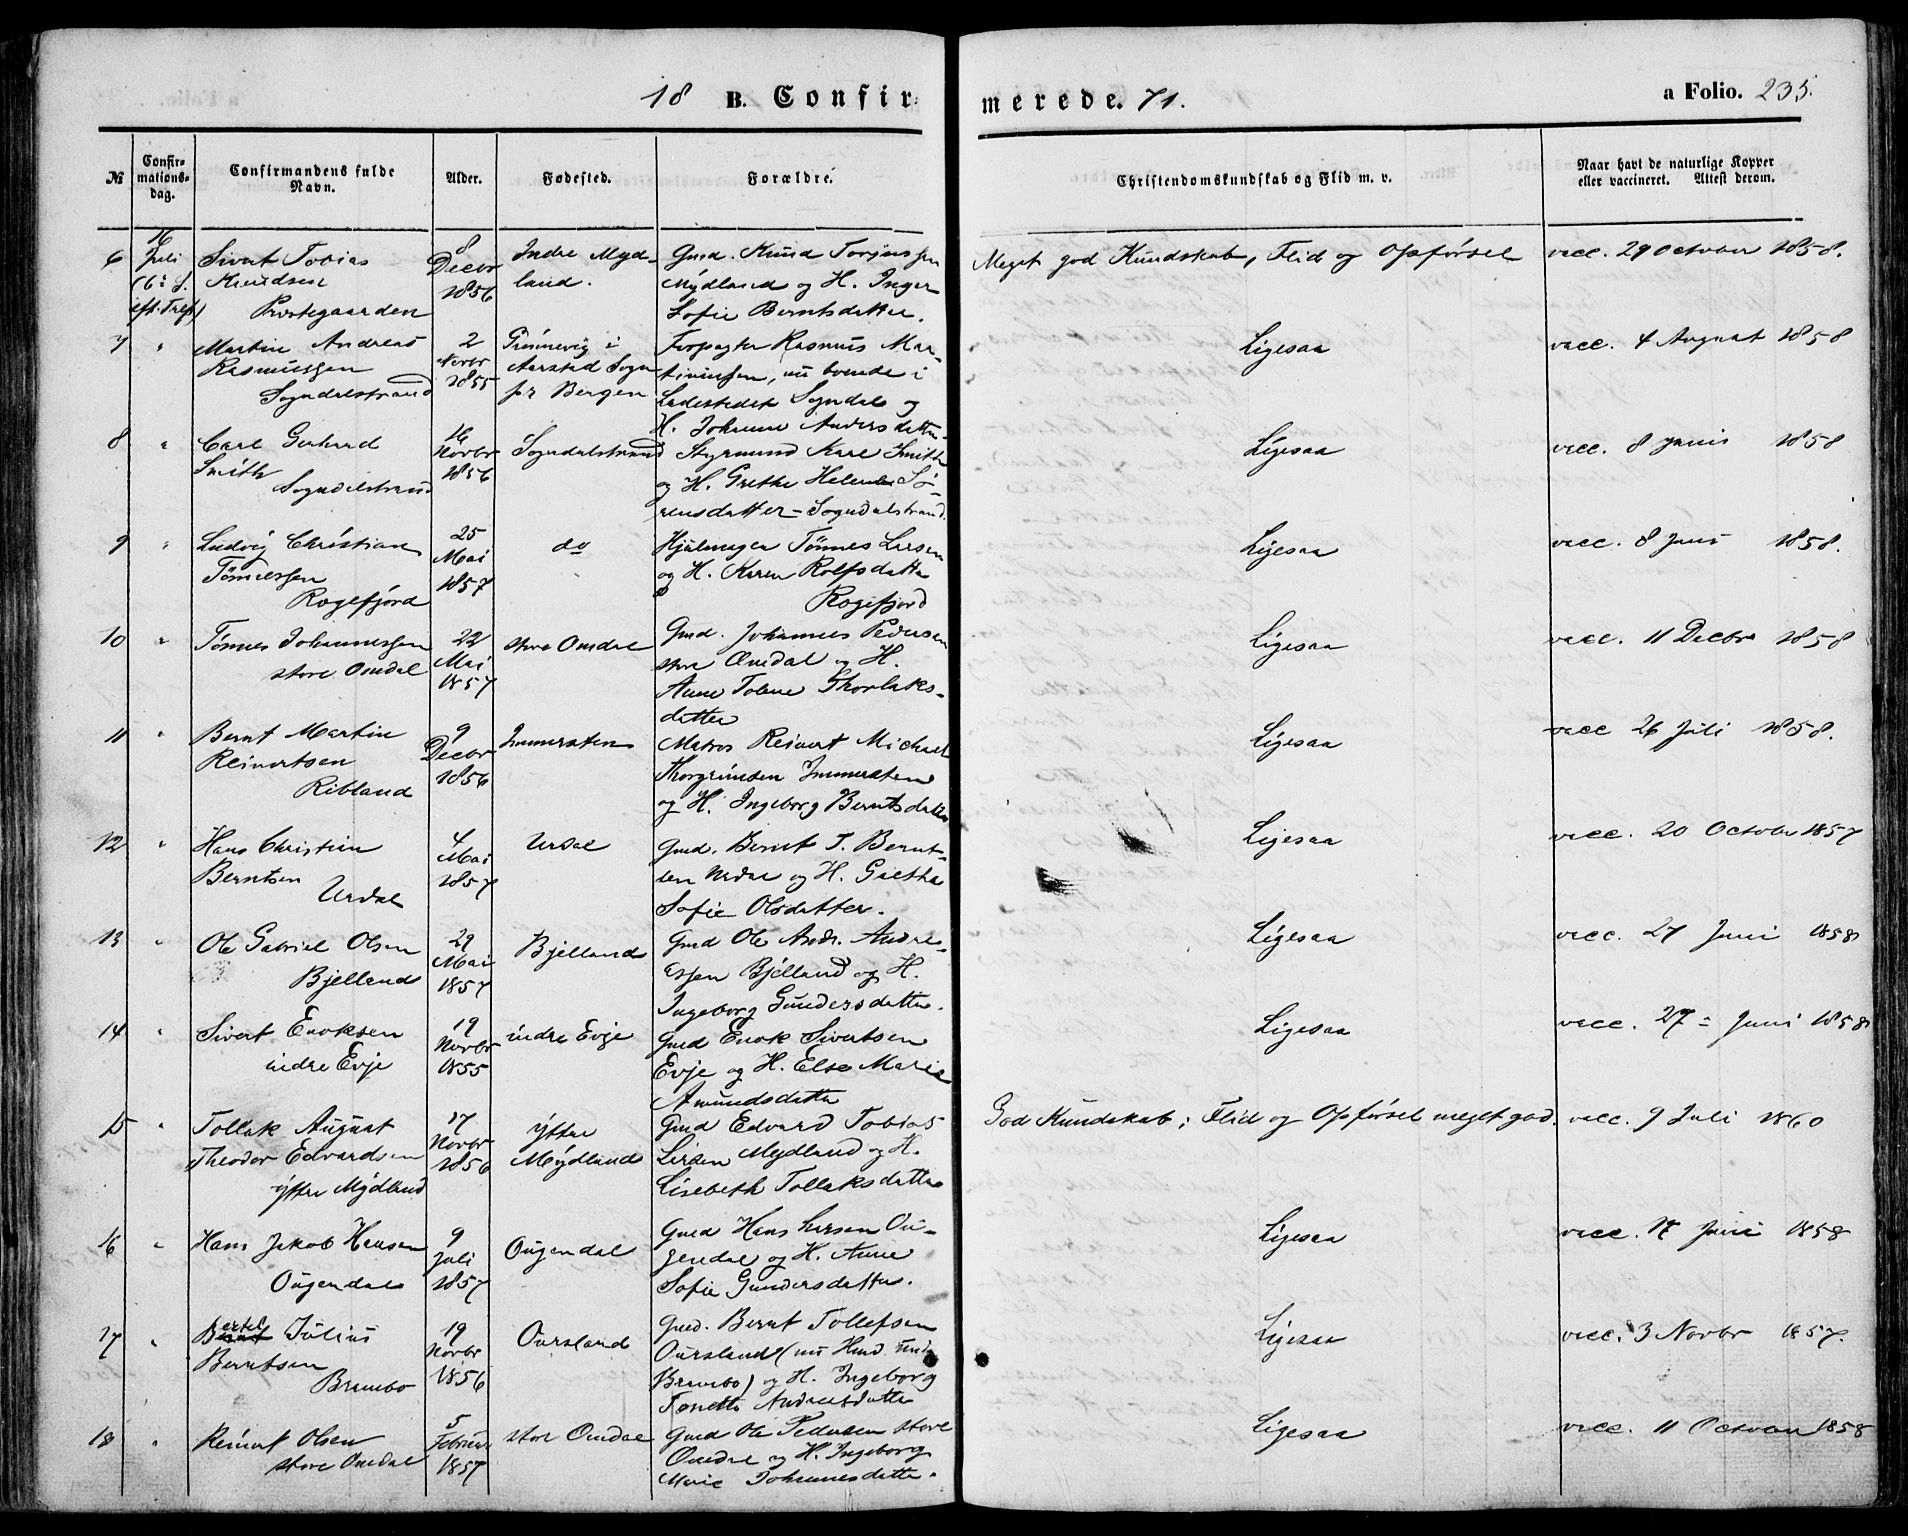 18 B. Confir-
merede. 71.
a Folio. 235.
№
Confir-
mations-
dag.
Confirmandens fulde
Navn.
Alder.
Fødested.
Forældre.
Christendomskundskab og Flid m. v.
Naar havt de naturlige Kopper
eller vaccineret. Attest derom.
6
16
Juli
(6: S.
eft. Tref)
Sivert Tobias
Knudsen
Præstegaarden
8
Decbr
1856
Indre Myd-
land.
Gmd. Knud Torjussen
Mydland og H. Inger
Sofie Berntsdatter.
Meget god Kundskab, Flid og Opførsel
vacc. 29 October 1858.
7
"
Martin Andreas
Rasmussen
Sogndalstrand
2
Novbr
1855
Grønnevig i
Aarstad Sogn
pr Bergen
Forpagter Rasmus Mar-
tinussen, nu boende i
Ladestedet Sogndal og
H. Johanne Andersdatter
Ligesaa
vacc. 4 August 1858
8
"
Carl Gerhard
Smith
Sogndalstrand
16
Novbr
1856
Sogndalstrand
Styrmand Karl Smith
og H. Grethe Helene Sø-
rensdatter - Sogndalstrand.
Ligesaa
vacc. 8 Junii 1858
9
"
Ludvig Christian
Tønnessen
Rægefjord
25
Mai
1857
do
Hjulmager Tønnes Larsen
og H. Karen Rolfsdatter
Rægefjord
Ligesaa
vacc. 8 Juni 1858.
10
"
Tønnes Johannessen
store Omdal
22
Mai
1857
store Omdal
Gmd. Johannes Pedersen
store Omdal og H.
Anne Tolene Thorlaks-
datter
Ligesaa
vacc. 11 Decbr 1858
11
"
Bernt Martin
Reinertsen
Ribland
9
Decbr
1856
Immersten
Matros Reinert Michael
Thorgrimsen Immersten
og H. Ingeborg Berntsdatter
Ligesaa
vacc 26 Juli 1858.
12
"
Hans Christian
Berntsen
Urdal
4
Mai
1857
Urdal
Gmd. Bernt T. Bernt-
sen Urdal og H. Grethe
Sofie Olsdatter.
Ligesaa
vacc. 20 October 1857
13
"
Ole Gabriel Olsen
Bjelland
29
Mai
1857
Bjelland
Gmd Ole Andr. Andre-
assen Bjelland og H.
Ingeborg Gundersdatter.
Ligesaa
vacc. 27 Juni 1858
14
"
Sivert Enoksen
indre Evje
19
Novbr
1855
indre Evje
Gmd Enok Sivertsen
Evje og H. Else Marie
Amundsdatter
Ligesaa
vacc. 27 Juni 1858
15
"
Tollak August
Theodor Edvardsen
yttre Mydland
17
Novbr
1856
yttre
Mydland
Gmd Edvard Tobias
Larsen Mydland og H.
Lisebeth Tollaksdatter
God Kundskab; Flid og Opførsel meget god.
vacc. 9 Juli 1860
16
"
Hans Jakob Hansen
Ougendal
9
Juli
1857
Ougendal
Gmd Hans Larsen Ou-
gendal og H. Anne
Sofie Gundersdatter.
Ligesaa
vacc. 17 Juni 1858
17
"
Bertel Julius
Berntsen
Brambo
19
Novbr
1856
Oursland
Gmd. Bernt Tollefsen
Oursland (nu Hmd. und.
Brambo) og H. Ingeborg
Tonette Andreasdatter
Ligesaa
vacc. 3 Novbr 1857.
18
"
Reinert Olsen
store Omdal
5
Februar
1857
store Omdal
Gmd Ole Pedersen store
Omdal og H. Ingeborg
Marie Johannesdatter.
Ligesaa
vacc. 11 October 1858